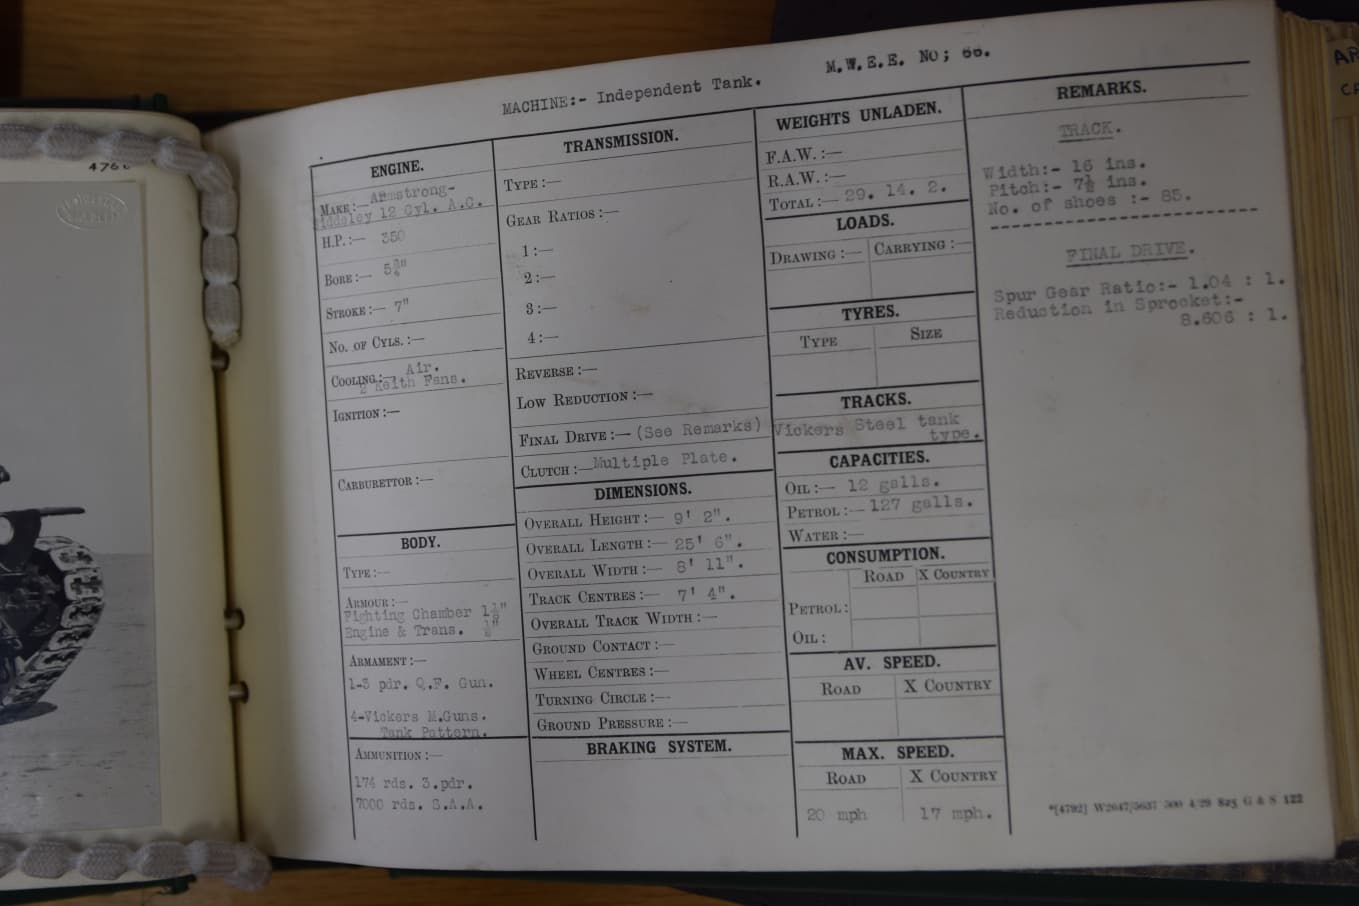 MACHINE:- Independent Tank.
M.W.E.E. NO; 66.
ENGINE.
MAKE:— Armstrong-
Siddeley 12 Cyl. A.C.
H.P.:— 350
BORE:— 5¾"
STROKE:— 7"
NO. OF CYLS.:—
COOLING:— Air.
2 Keith Fans.
IGNITION:—
CARBURETTOR:—
BODY.
TYPE:—
ARMOUR:—
Fighting Chamber 1¼"
Engine & Trans. ½"
ARMAMENT:—
1-3 pdr. Q.F. Gun.
4-Vickers M.Guns.
Tank Pattern.
AMMUNITION:—
174 rds. 3.pdr.
7000 rds. S.A.A.
TRANSMISSION.
TYPE:—
GEAR RATIOS:—
1:—
2:—
3:—
4:—
REVERSE:—
LOW REDUCTION:—
FINAL DRIVE:— (See Remarks)
CLUTCH:— Multiple Plate.
DIMENSIONS.
OVERALL HEIGHT:— 9' 2".
OVERALL LENGTH:— 25' 6".
OVERALL WIDTH:— 8' 11".
TRACK CENTRES:— 7' 4".
OVERALL TRACK WIDTH:—
GROUND CONTACT:—
WHEEL CENTRES:—
TURNING CIRCLE:—
GROUND PRESSURE:—
BRAKING SYSTEM.
WEIGHTS UNLADEN.
F.A.W.:—
R.A.W.:—
TOTAL:— 29. 14. 2.
LOADS.
DRAWING:— CARRYING:—
TYRES.
TYPE SIZE
TRACKS.
Vickers Steel tank
type.
CAPACITIES.
OIL:— 12 galls.
PETROL:— 127 galls.
WATER:—
CONSUMPTION.
ROAD X COUNTRY
PETROL:
OIL:
AV. SPEED.
ROAD X COUNTRY
MAX. SPEED.
ROAD X COUNTRY
20 mph 17 mph.
REMARKS.
TRACK.
Width:- 16 ins.
Pitch:- 7½ ins.
No. of shoes :- 85.
FINAL DRIVE.
Spur Gear Ratio:- 1.04 : 1.
Reduction in Sprocket:-
8.606 : 1.
*[4792] W2647/5637 500 4/29 825 G & S 122